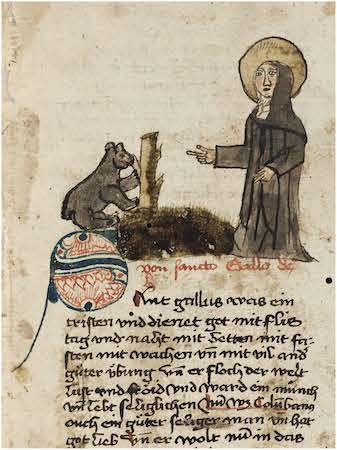 von sancto Gallo de
Ant gallus was ein
cristen vnd dienet got mit flis
tag vnd nacht mit betten mit fas
sten mit wachen vn̄ mit vil and
gůter v̈bung vn̄ er floch der welt
lust vnd fröid vnd ward ein münch
vn̄ lebt seligklichen Nun wz Columbanus
ouch ein gůter seliger man vn̄ hat
got lieb vn̄ er wolt nun in das